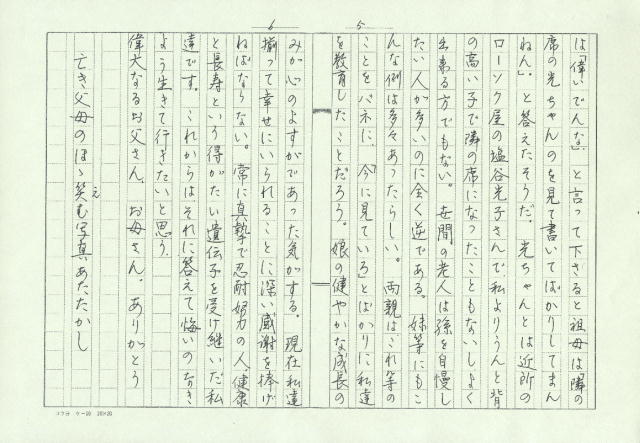 5
は偉いでんな」と言って下さると祖母は隣の
席の光ちゃんのを見て書いてばかりしてまん
ねん」と答えたそうだ。光ちゃんとは近所の
ローソク屋の塩谷光子さんで、私よりうんと背
の高い子で隣の席になったこともないしよく
出来る方でもない。世間の老人は孫を自慢し
たい人が多いのに全く逆である。妹等にもこ
んな例は多々あったらしい。両親はこれ等の
ことをバネに、「今に見ていろとばかりに私達
を教育したことだろう。娘の健やかな成長の
6
みが心のよすがであった気がする。現在私達
揃って幸せにいられることに深い感謝を捧げ
ねばならない。常に真摯で忍耐努力の人、健康
と長寿という得がたい遺伝子を受け継いだ私
達です。これからはそれに答えて悔いのなき
よう生きて行きたいと思う。
偉大なるお父さん、お母さん、ありがとう
亡き父母のほゝ笑む写真あたたかし
え
コクヨ ケ-10 20×20